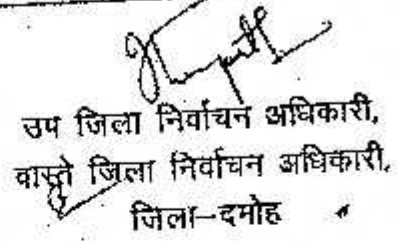 उप जिला निर्वाचन अधिकारी,
वास्ते जिला निर्वाचन अधिकारी,
जिला-दमोह